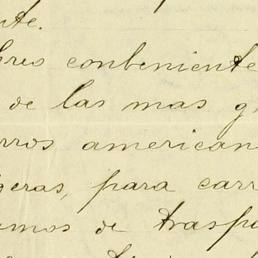 nte.
bres conbeniente
de las mas g
rros american
geras, para carr
mos de traspo